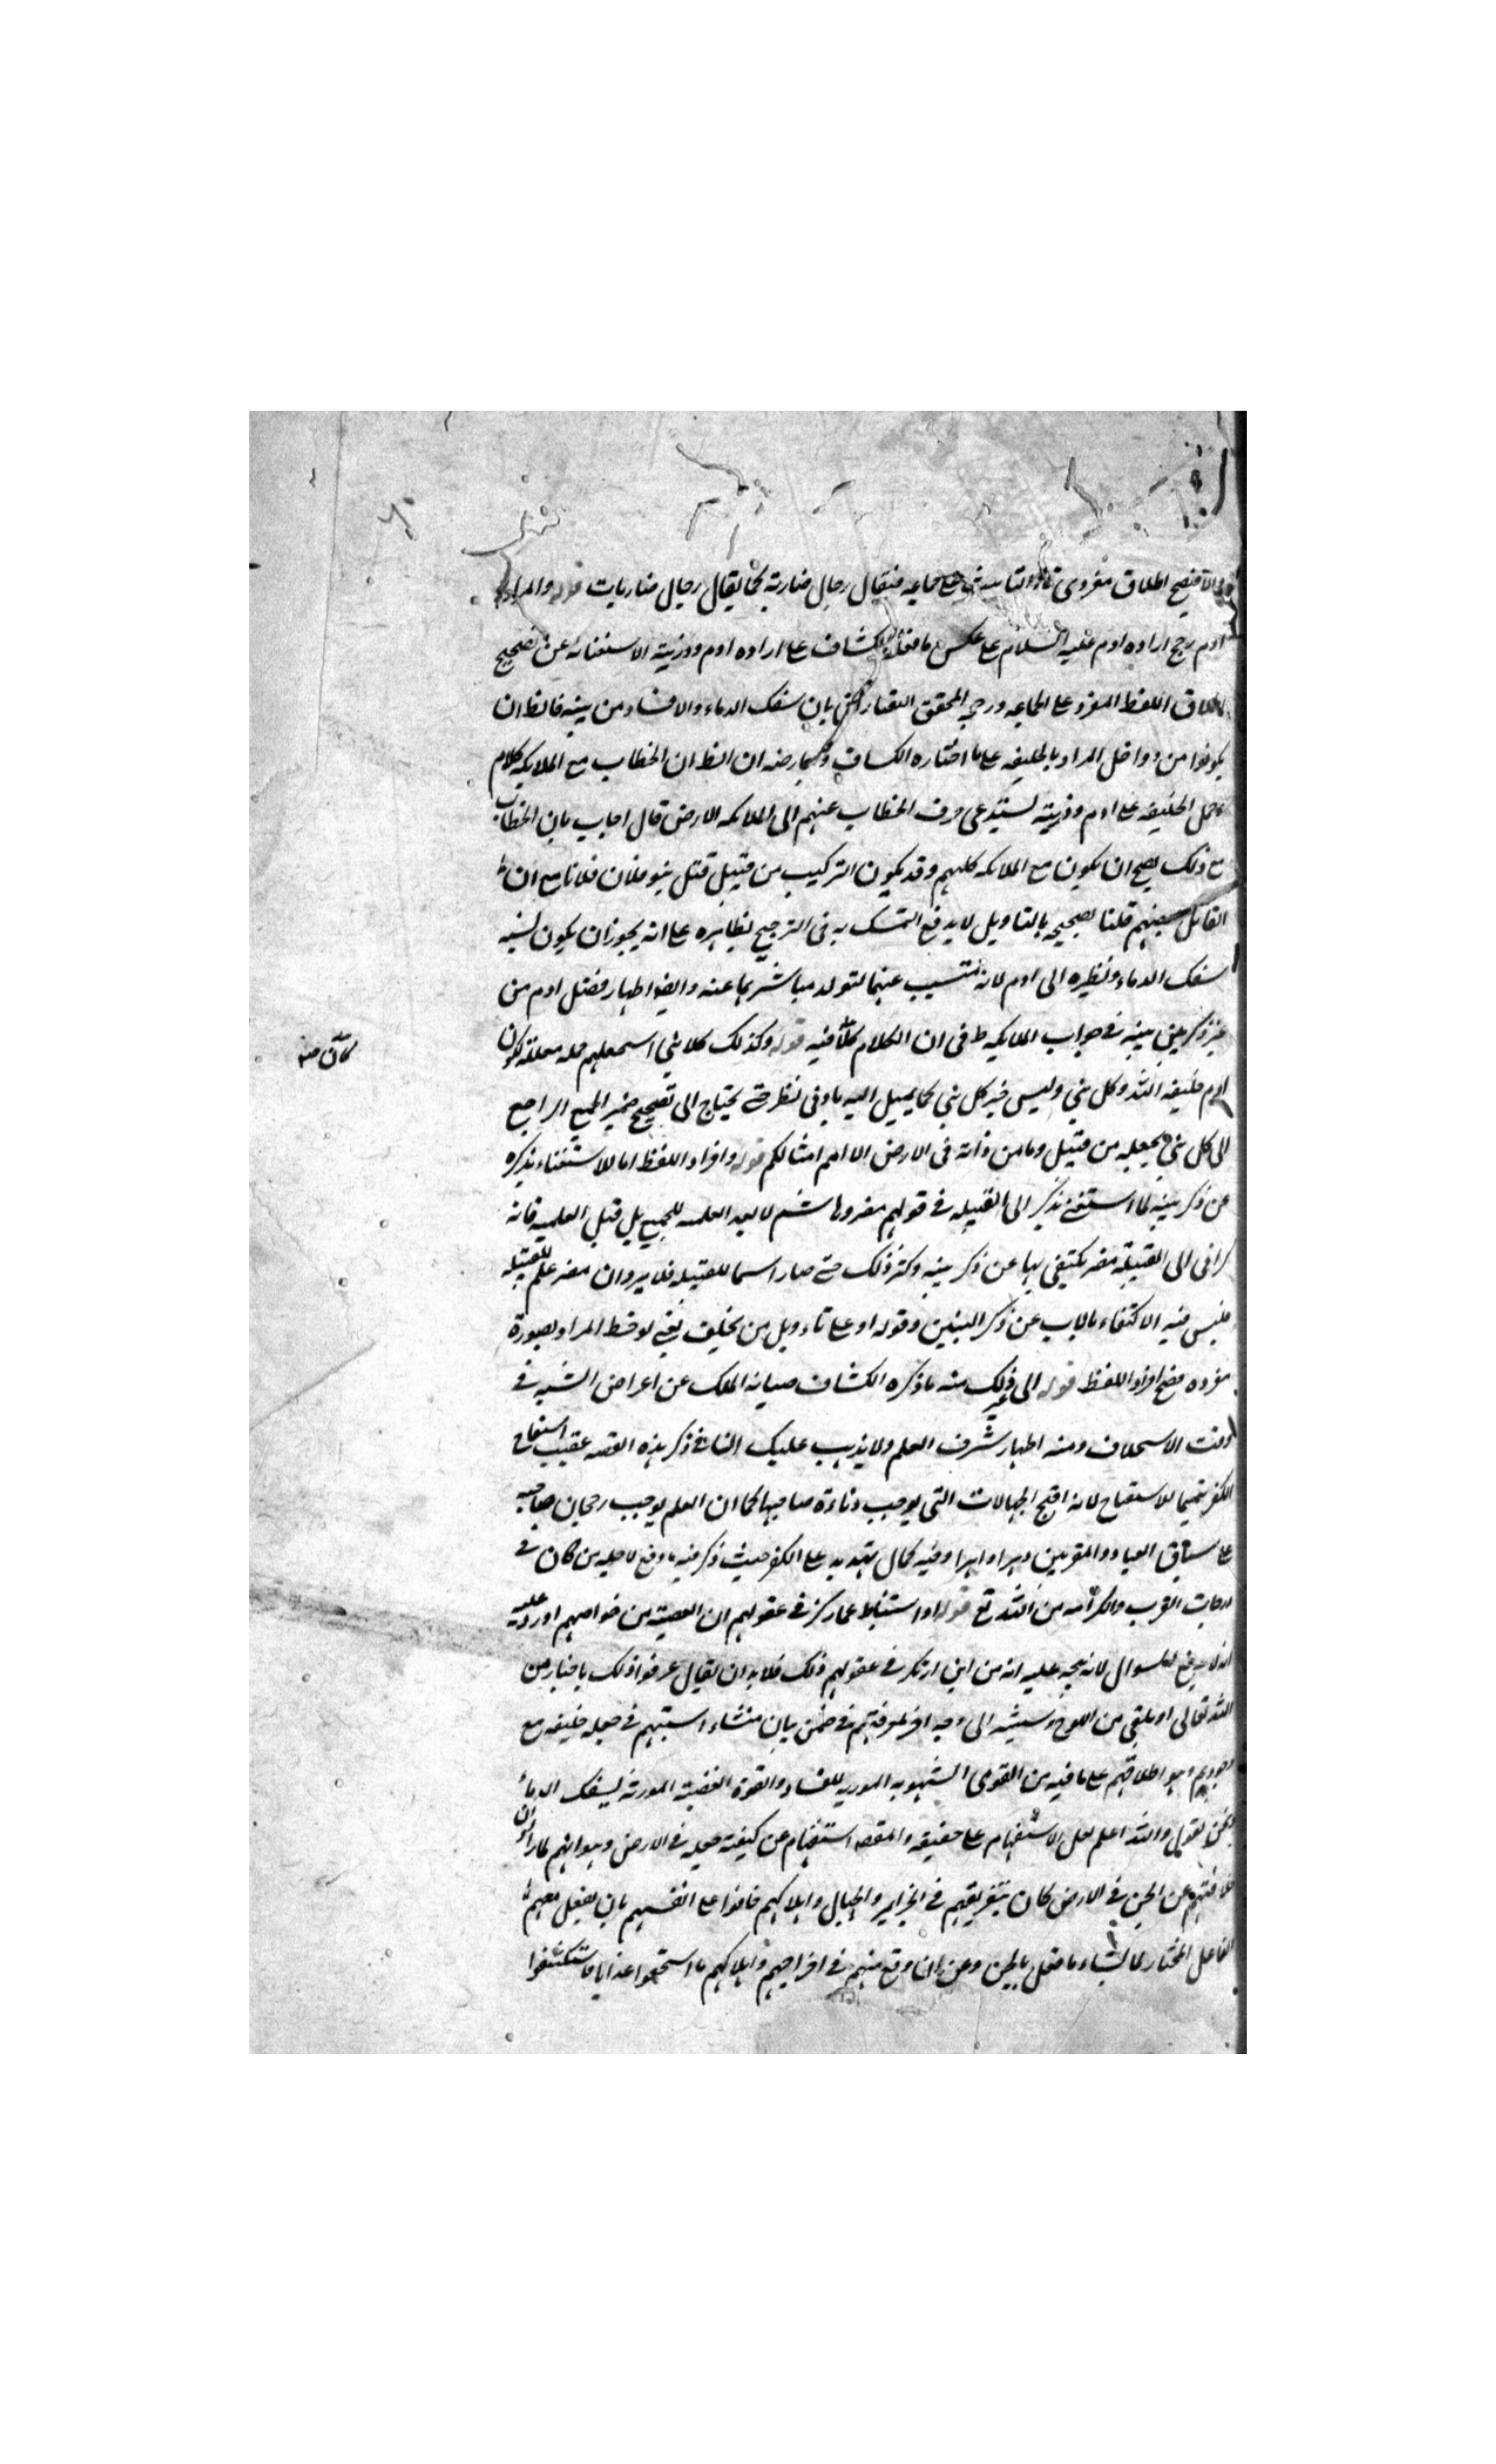 والا فيصح اطلاق مفرد ذى تاء التانيث على جماعه فيقال رجال ضاربة كما يقال رجال ضاربات قوله والمراد
ادم رجح اراده ادم عليه السلام على عكس ما فعله الكشاف على اراده ادم وذريته لاستغنائه عن تصحيح
اطلاق اللفظ المفرد على الجماعه ورجح المحقق التفتازانى بان سفك الدماء والافساد من بنيه فالظ ان
يكونوا من دواخل المراد بالخليفه على ما اختاره الكشاف ويعارضه ان الظ ان الخطاب مع الملايكه كلهم
وحمل الخليفه على ادم وذريته يستدعى صرف الخطاب عنهم الى ملايكه الارض قال اجاب بان الخطاب
مع ذلك يصح ان يكون مع الملايكه كلهم وقد يكون التركيب من قبيل قتل بنو فلان فلانا مع ان
القاتل بعضهم قلنا تصحيحه بالتاويل لا يدفع التمسك به فى الترجيح بظاهره على انه يجوز ان يكون نسبه
سفك الدماء ونظيره الى ادم لانه تسبب عنهما لتولد مباشريها عنه وايضا اظهار فضل ادم من
غير ذكر بنيه فى جواب الملايكه ظ فى ان الكلام كان فيه قوله وكذلك كل نبى استخلفهم جمله معللة لكون
كان منه
ادم خليفه الله وكل نبى وليس خبر كل نبى كما يميل اليه بادى نظر حتى يحتاج الى تصحيح ضمير الجمع الراجع
الى كل نبى بجعله من قبيل وما من دابه فى الارض الا امم امثالكم قوله وافراد اللفظ اما للاستغناء بذكره
عن ذكر بنيه كما استغنى بذكر ابى القبيله فى قولهم مضر وهاشم لا بعد العلميه للجميع بل قبل العلميه فانه
كما فى ابى القبيلة مضر يكتفى بها عن ذكر بنيه وكثر ذلك حتى صار اسما للقبيله فلا يرد ان مضر علم للقبيله
فليس فيه الاكتفاء بالاب عن ذكر البنين وقوله او على تاويل من يخلف يعنى لوحظ المراد بصورة
مفرده فصح افراد اللفظ قوله الى غير ذلك منه ما ذكره الكشاف صيانه الملك عن اعراض الشبه فى
وقت الاستخلاف ومنه اظهار شرف العلم ولا يذهب عليك ان فى ذكر هذه القصه عقيب استقباح
الكفر تتميما للاستقباح لانه اقبح الجهالات التى يوجب دناءة صاحبها كما ان العلم يوجب رجحان صاحبه
على سباق العباد والمقربين دهرا داهرا وفيه كمال تهديد على الكفر حيث ذكر فيه ما وقع لاجله من كان فى
درجات القرب والكرامه من الله تع قوله او استنباط عما ركز فى عقولهم ان العصمة من خواصهم اورد عليه
انه لا يدفع السوال لانه يتجه عليه انه من اين ارتكز فى عقولهم ذلك فلا بد ان يقال عرفوا ذلك باخبار من
الله تعالى او بتلقى من اللوح وسيشير الى وجه اخر لمعرفتهم فى ضمن بيان منشاء استبهم فى جعله خليفه مع
وهو اطلاقهم على ما فيه من القوى الشهويه الموديه للفساد والقوة الغضبية المورثه لسفك الدماء
ونحن نقول والله اعلم لعل الاستفهام على حقيقه والمقصد استفهام عن كيفية جعله فى الارض وهو انهم لما راوا ان
خلافتهم عن الجن فى الارض كان بتفريقهم فى الجزاير والجبال واهلاكهم خافوا على انفسهم بان يفعل معهم
الفاعل المختار لما يشاء ما فعل بالجن وعن ان وقع منهم فى اخراجهم واهلاكهم ما استحقوا عذابا فاستكشفوا